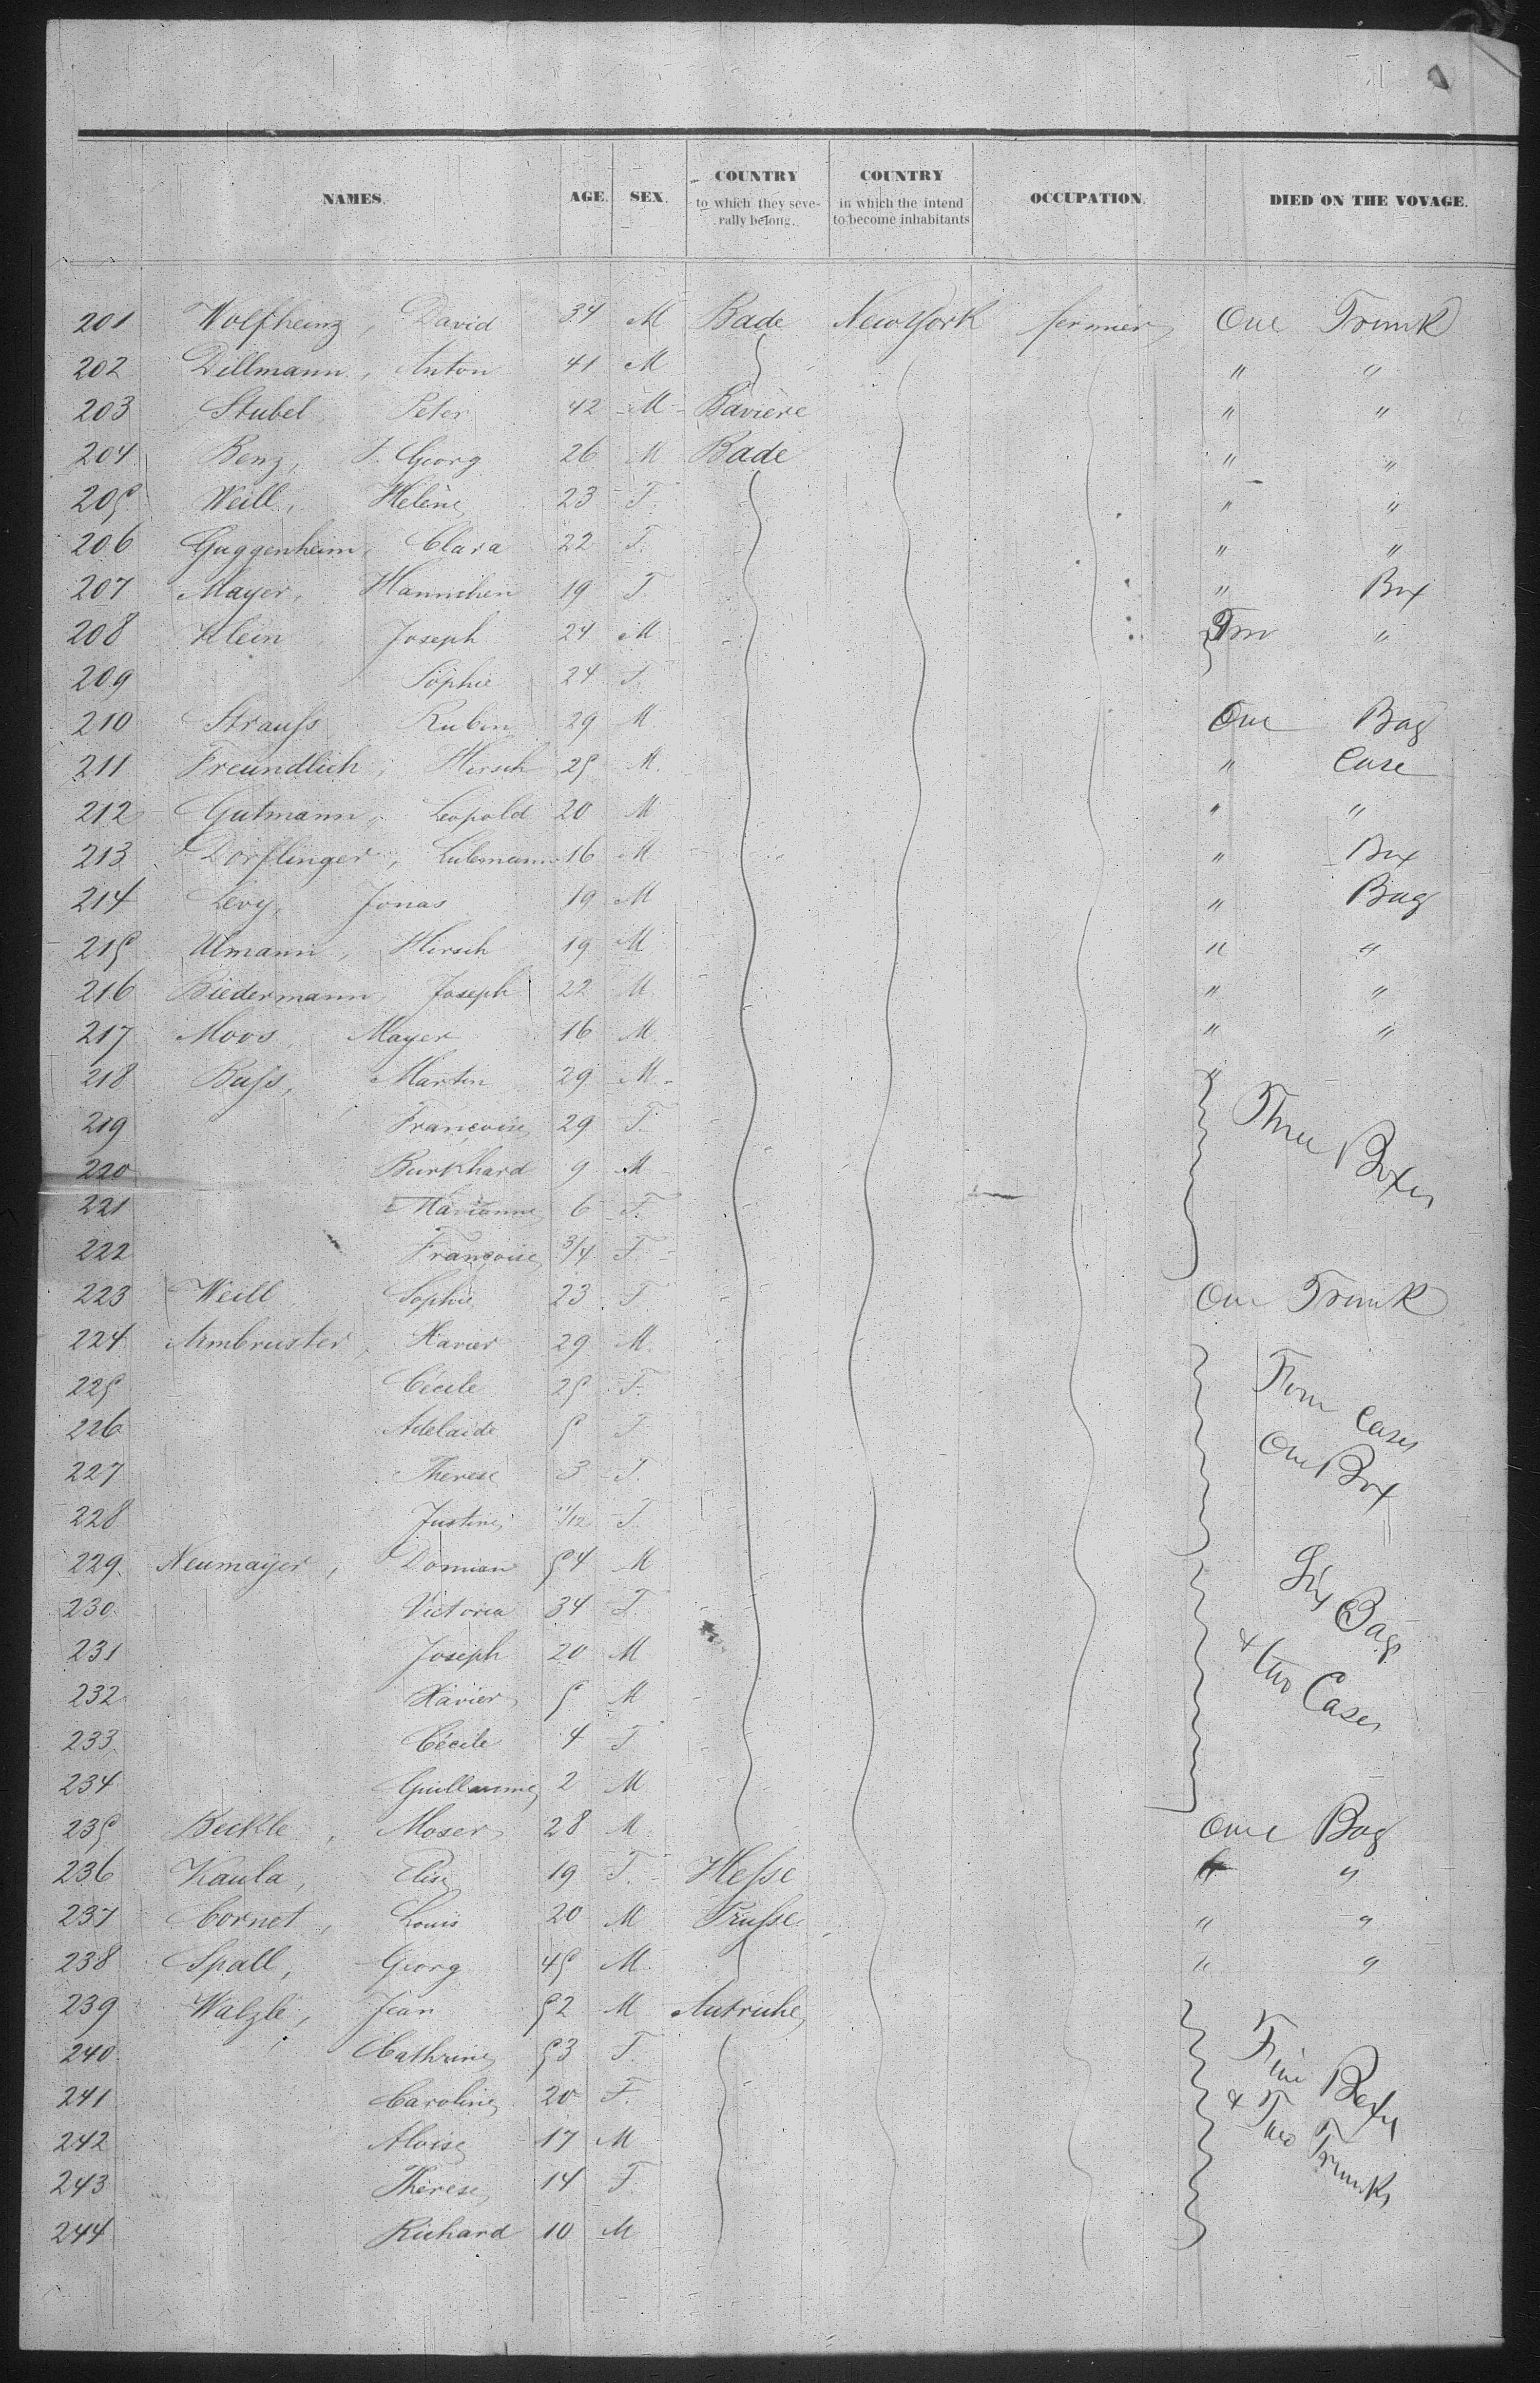 NAMES. AGE. SEX. COUNTRY to which they seve- rally belong. COUNTRY in which the intend to become inhabitants OCCUPATION. DIED ON THE VOVAGE.
201 Wolfheinz, David 34 M Bade New York fermier One Trunk
202 Dillmann, Anton 41 M " "
203 Stubel Peter 42 M Bavière " "
204 Benz, J. Georg 26 M Bade " "
205 Weill, Helène 23 F " "
206 Guggenheim, Clara 22 F. " "
207 Mayer, Hannchen 19 F. " Box
208 Klein Joseph 24 M Two "
209 Sophie 24 F.
210 Strauss Rubin 29 M One Bag
211 Freundlich, Hirsch 25 M. " Case
212 Gutmann, Leopold 20 M " "
213 Dorflinger, 16 M " Box
214 Levy, Jonas 19 M " Bag
215 Ulmann, Hirsch 19 M " "
216 Biedermann Joseph 22 M " "
217 Moos, Mayer 16 M " "
218 Buss, Martin 29 M "
219 Françoise 29 F. Three Boxes
220 Burkhard 9 M
221 Marianne 6 F.
222 Françoise 3/4 F
223 Weill Sophie 23 F One Trunk
224 Armbruster, Xavier 29 M.
225 Cécile 25 F. Four Cases
226 Adelaide 5 F One Box
227 Therese 3 F.
228 Justine 11/12 F.
229. Neumayer, Damian 54 M Six Bags
230. Victoria 34 F.
231 Joseph 20 M & two Cases
232 Xavier 5 M
233. Cécile 4 F
234 Guillaume 2 M
235 Beckle, Moser 28 M One Bag
236 Kaula, Elise 19 F. Hesse " "
237 Cornet, Louis 20 M Prusse " "
238 Spall, Georg 45 M. " "
239 Walzle, Jean 52 M Autriche
240. Cathrine 53 F. Five Boxes
241 Caroline 20 F. & Two Trunks
242 Aloise 17 M
243 Thérese 14 F
244 Richard 10 M